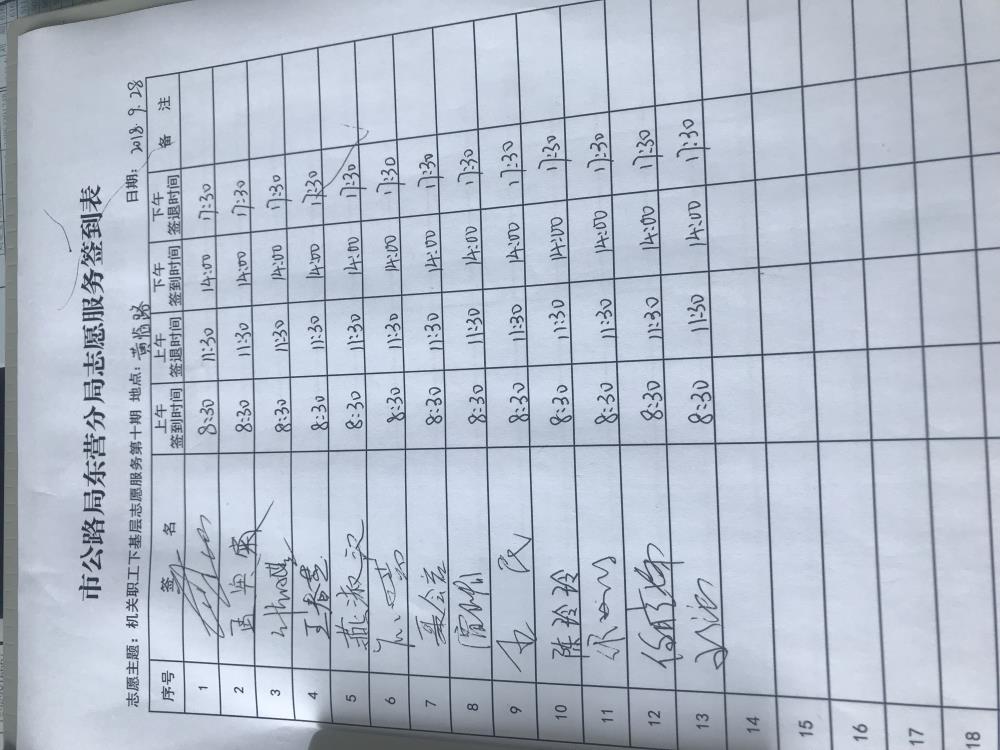 市公路局东营分局志愿服务签到表
志愿主题：机关职工下基层志愿服务第十期 地点：黄临路 日期：2018.9.28
序号 签 名 上午签到时间 上午签退时间 下午签到时间 下午签退时间 备 注
1 8:30 11:30 14:00 17:30
2 8:30 11:30 14:00 17:30
3 8:30 11:30 14:00 17:30
4 8:30 11:30 14:00 17:30
5 燕淑 8:30 11:30 14:00 17:30
6 8:30 11:30 14:00 17:30
7 聂会 8:30 11:30 14:00 17:30
8 8:30 11:30 14:00 17:30
9 民 8:30 11:30 14:00 17:30
10 陈玲玲 8:30 11:30 14:00 17:30
11 8:30 11:30 14:00 17:30
12 8:30 11:30 14:00 17:30
13 8:30 11:30 14:00 17:30
14
15
16
17
18